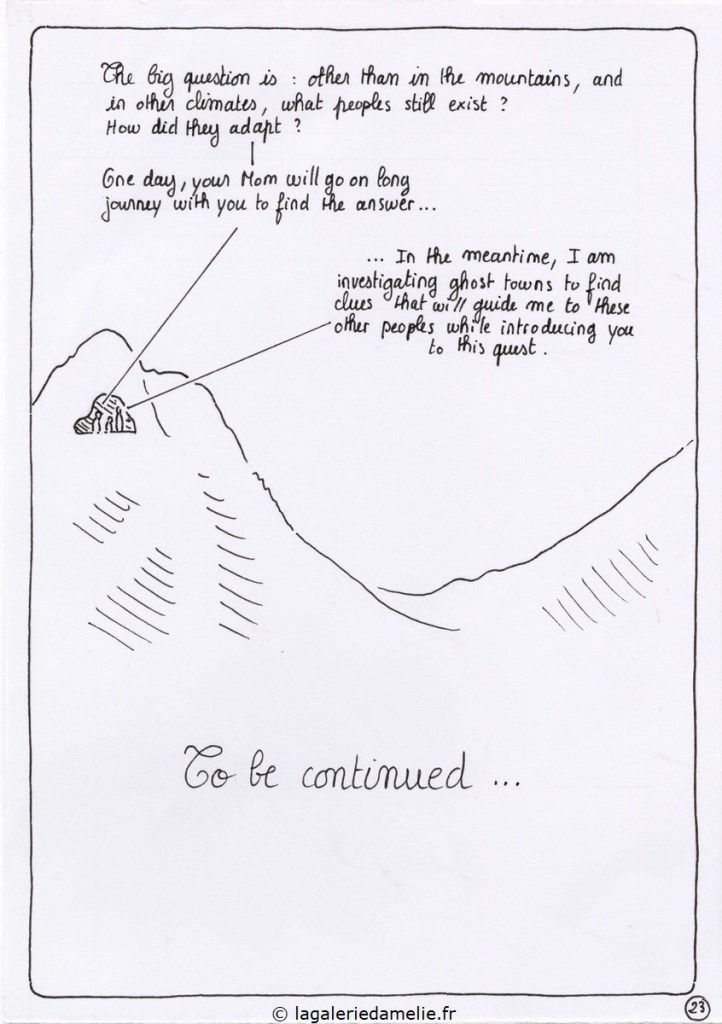 The big question is : other than in the mountains, and
in other climates, what peoples still exist ?
How did they adapt ?
One day, your Mom will go on long
journey with you to find the answer...
... In the meantime, I am
investigating ghost towns to find
clues that will guide me to these
other peoples while introducing you
to this quest.
To be continued ...
23
© lagaleriedamelie.fr